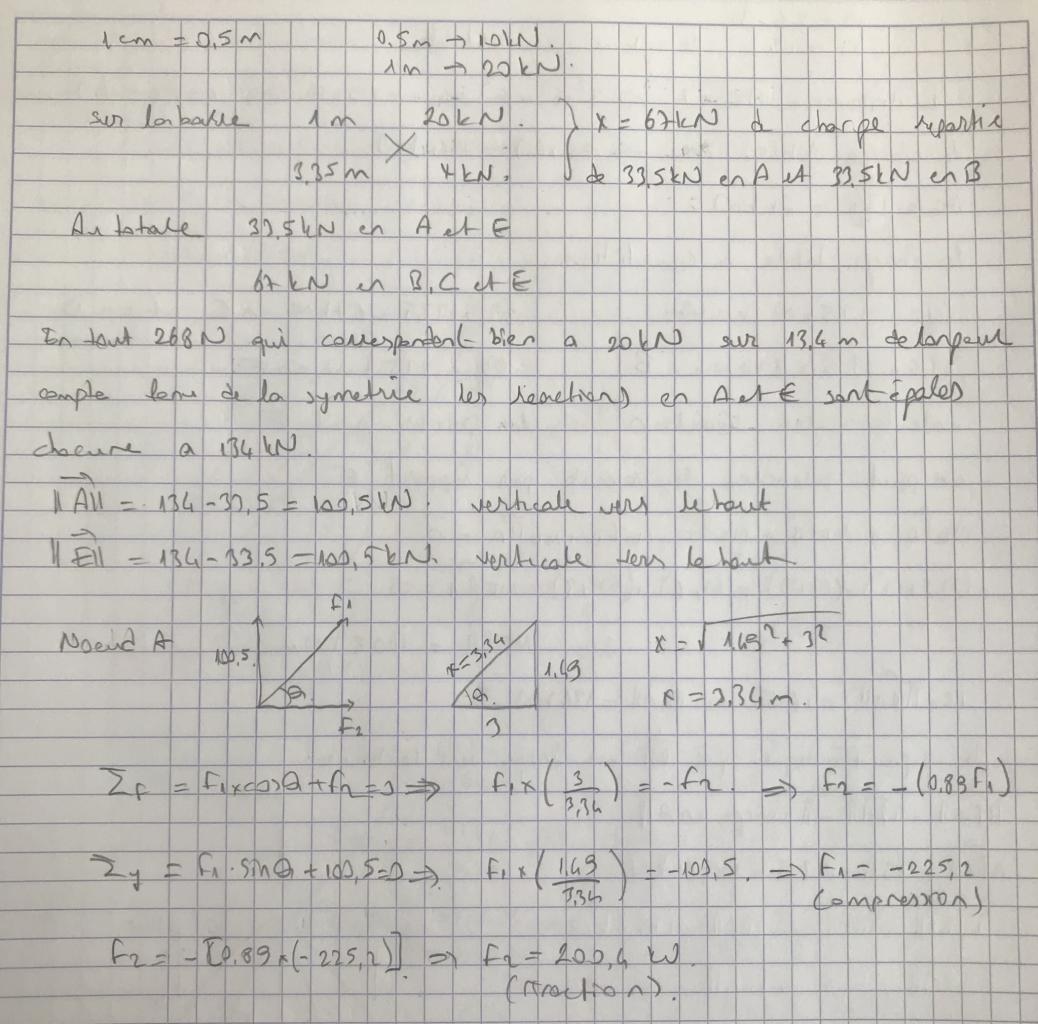 1 cm = 0,5 m 0,5m → 10kN.
1m → 20 kN.
sur la balle 1 m 20kN. } x = 67kN à charge repartie
3,35 m x kN. de 33,5kN en A et 33,5kN en B
Au totale 33,5kN en A et E
67 kN en B, C et E
En tout 268N qui correspondent bien a 20kN sur 13,4 m de longeur
compte tenu de la symetrie les reactions en A et E sont égales
chacune a 134 kN.
||A|| = 134 - 33,5 = 100,5 kN. verticale vers le haut
||E|| = 134 - 33,5 = 100,5 kN. verticale vers le haut
F1
Noeud A 100,5 θ F2 x=3,34 θ 1,49 3 x = √1,49² + 3²
x = 3,34 m.
Σx = F1 x cosθ + F2 = 0 ⇒ F1 x (3/3,34) = -F2. ⇒ F2 = -(0,89F1)
Σy = F1 . sinθ + 100,5 = 0 ⇒ F1 x (1,49/3,34) = -100,5. ⇒ F1 = -225,2
(compression)
F2 = -[0,89 x (-225,2)] ⇒ F2 = 200,4 kN.
(traction).